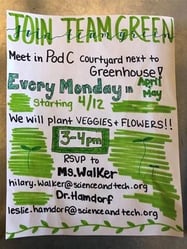 JOIN TEAM GREEN
Join team green
Meet in Pod C courtyard next to
Greenhouse!
Every Monday in April
May
Starting 4/12
We will plant VEGGIES + FLOWERS!!
3-4pm
RSVP to
Ms. Walker
hilary.walker@scienceandtech.org
Dr. Hamdorf
leslie.hamdorf@scienceandtech.org